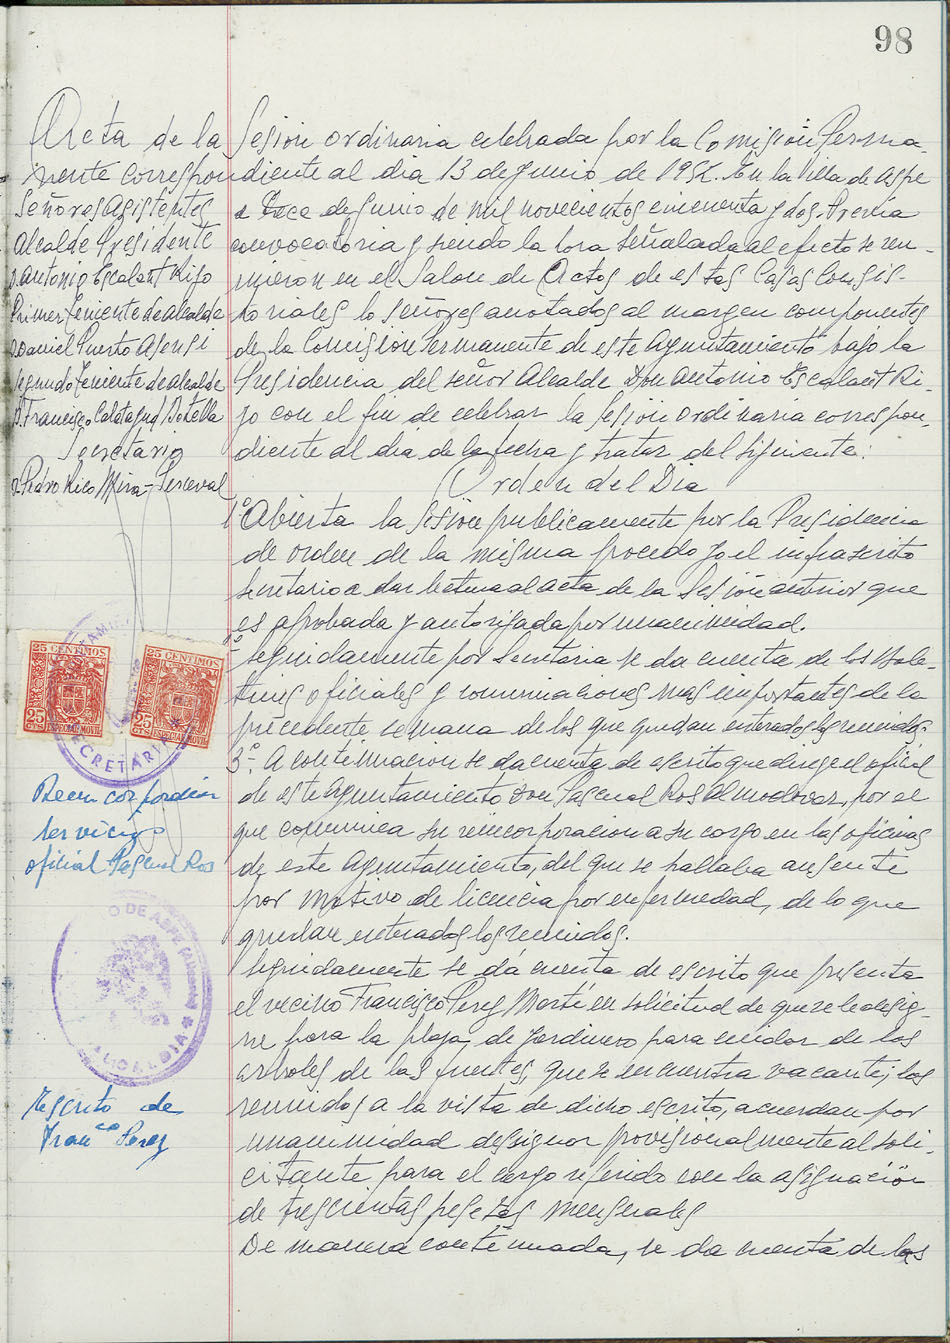 98
Acta de la Sesión ordinaria celebrada por la Comisión Perma-
nente correspondiente al dia 13 de Junio de 1952. En la Villa de Aspe
a trece de Junio de mil novecientos cincuenta y dos. Previa
convocatoria y siendo la hora señalada al efecto se reu-
nieron en el Salon de Actos de estas Casas Consis-
toriales lo señores anotados al margen componentes
de la Comisión Permanente de este Ayuntamiento bajo la
Presidencia del señor Alcalde Don Antonio Escalant Ri-
zo con el fin de celebrar la Sesión ordinaria correspon-
diente al dia de la fecha y tratar del siguiente:
Orden del Dia
Señores Asistentes
Alcalde Presidente
D. Antonio Escalant Rizo
Primer Teniente de alcalde
D. Daniel Puerto Asensi
Segundo Teniente de alcalde
D. Francisco Calatayud Botella
Secretario
D. Pedro Rico Mira-Perceval
1º Abierta la Sesión publicamente por la Presidencia
de orden de la misma procedo yo el infrascrito
secretario a dar lectura al acta de la Sesión anterior que
es aprobada y autorizada por unanimidad.
Seguidamente por Secretaria se da cuenta de los Bole-
tines oficiales y comunicaciones mas importantes de la
precedente semana de los que quedan enterados los reunidos.
3º. A continuacion se da cuenta de escrito que dirige el oficial
de este Ayuntamiento Don Pascual Ros Almodovar, por el
que comunica su reincorporacion a su cargo en las oficinas
de este Ayuntamiento, del que se hallaba ausente
por motivo de licencia por enfermedad, de lo que
quedan enterados los reunidos.
Seguidamente se dá cuenta de escrito que presenta
el vecino Francisco Perez Martí en solicitud de que se le desig-
ne para la plaza de Jardinero para cuidar de los
arboles de las fuentes, que se encuentra vacante; los
reunidos a la vista de dicho escrito, acuerdan por
unanimidad designar provisionalmente al soli-
citante para el cargo referido con la asignación
de trescientas pesetas mensuales
De manera continuada, se da cuenta de las
25 CENTIMOS
25
CTS
ESPECIAL MOVIL
25 CENTIMOS
25
CTS
ESPECIAL MOVIL
SECRETARIA
Reincorporación
servicio
oficial Pascual Ros
DE ASPE
ALCALDIA
Escrito de
Franco Perez